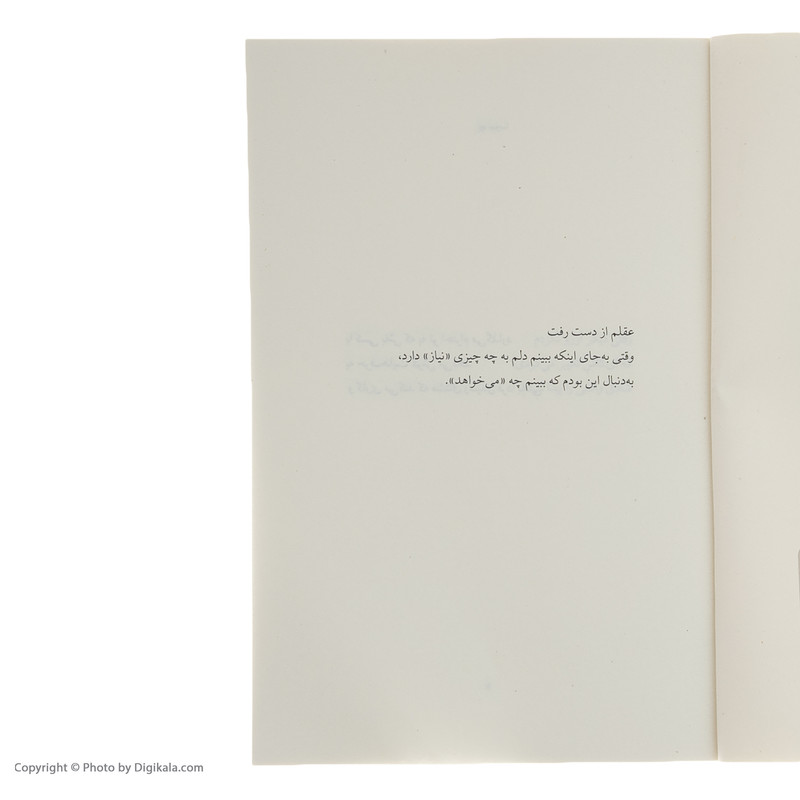 عقلم از دست رفت
وقتی به‌جای اینکه ببینم دلم به چه چیزی «نیاز» دارد،
به‌دنبال این بودم که ببینم چه «می‌خواهد».
Copyright © Photo by Digikala.com